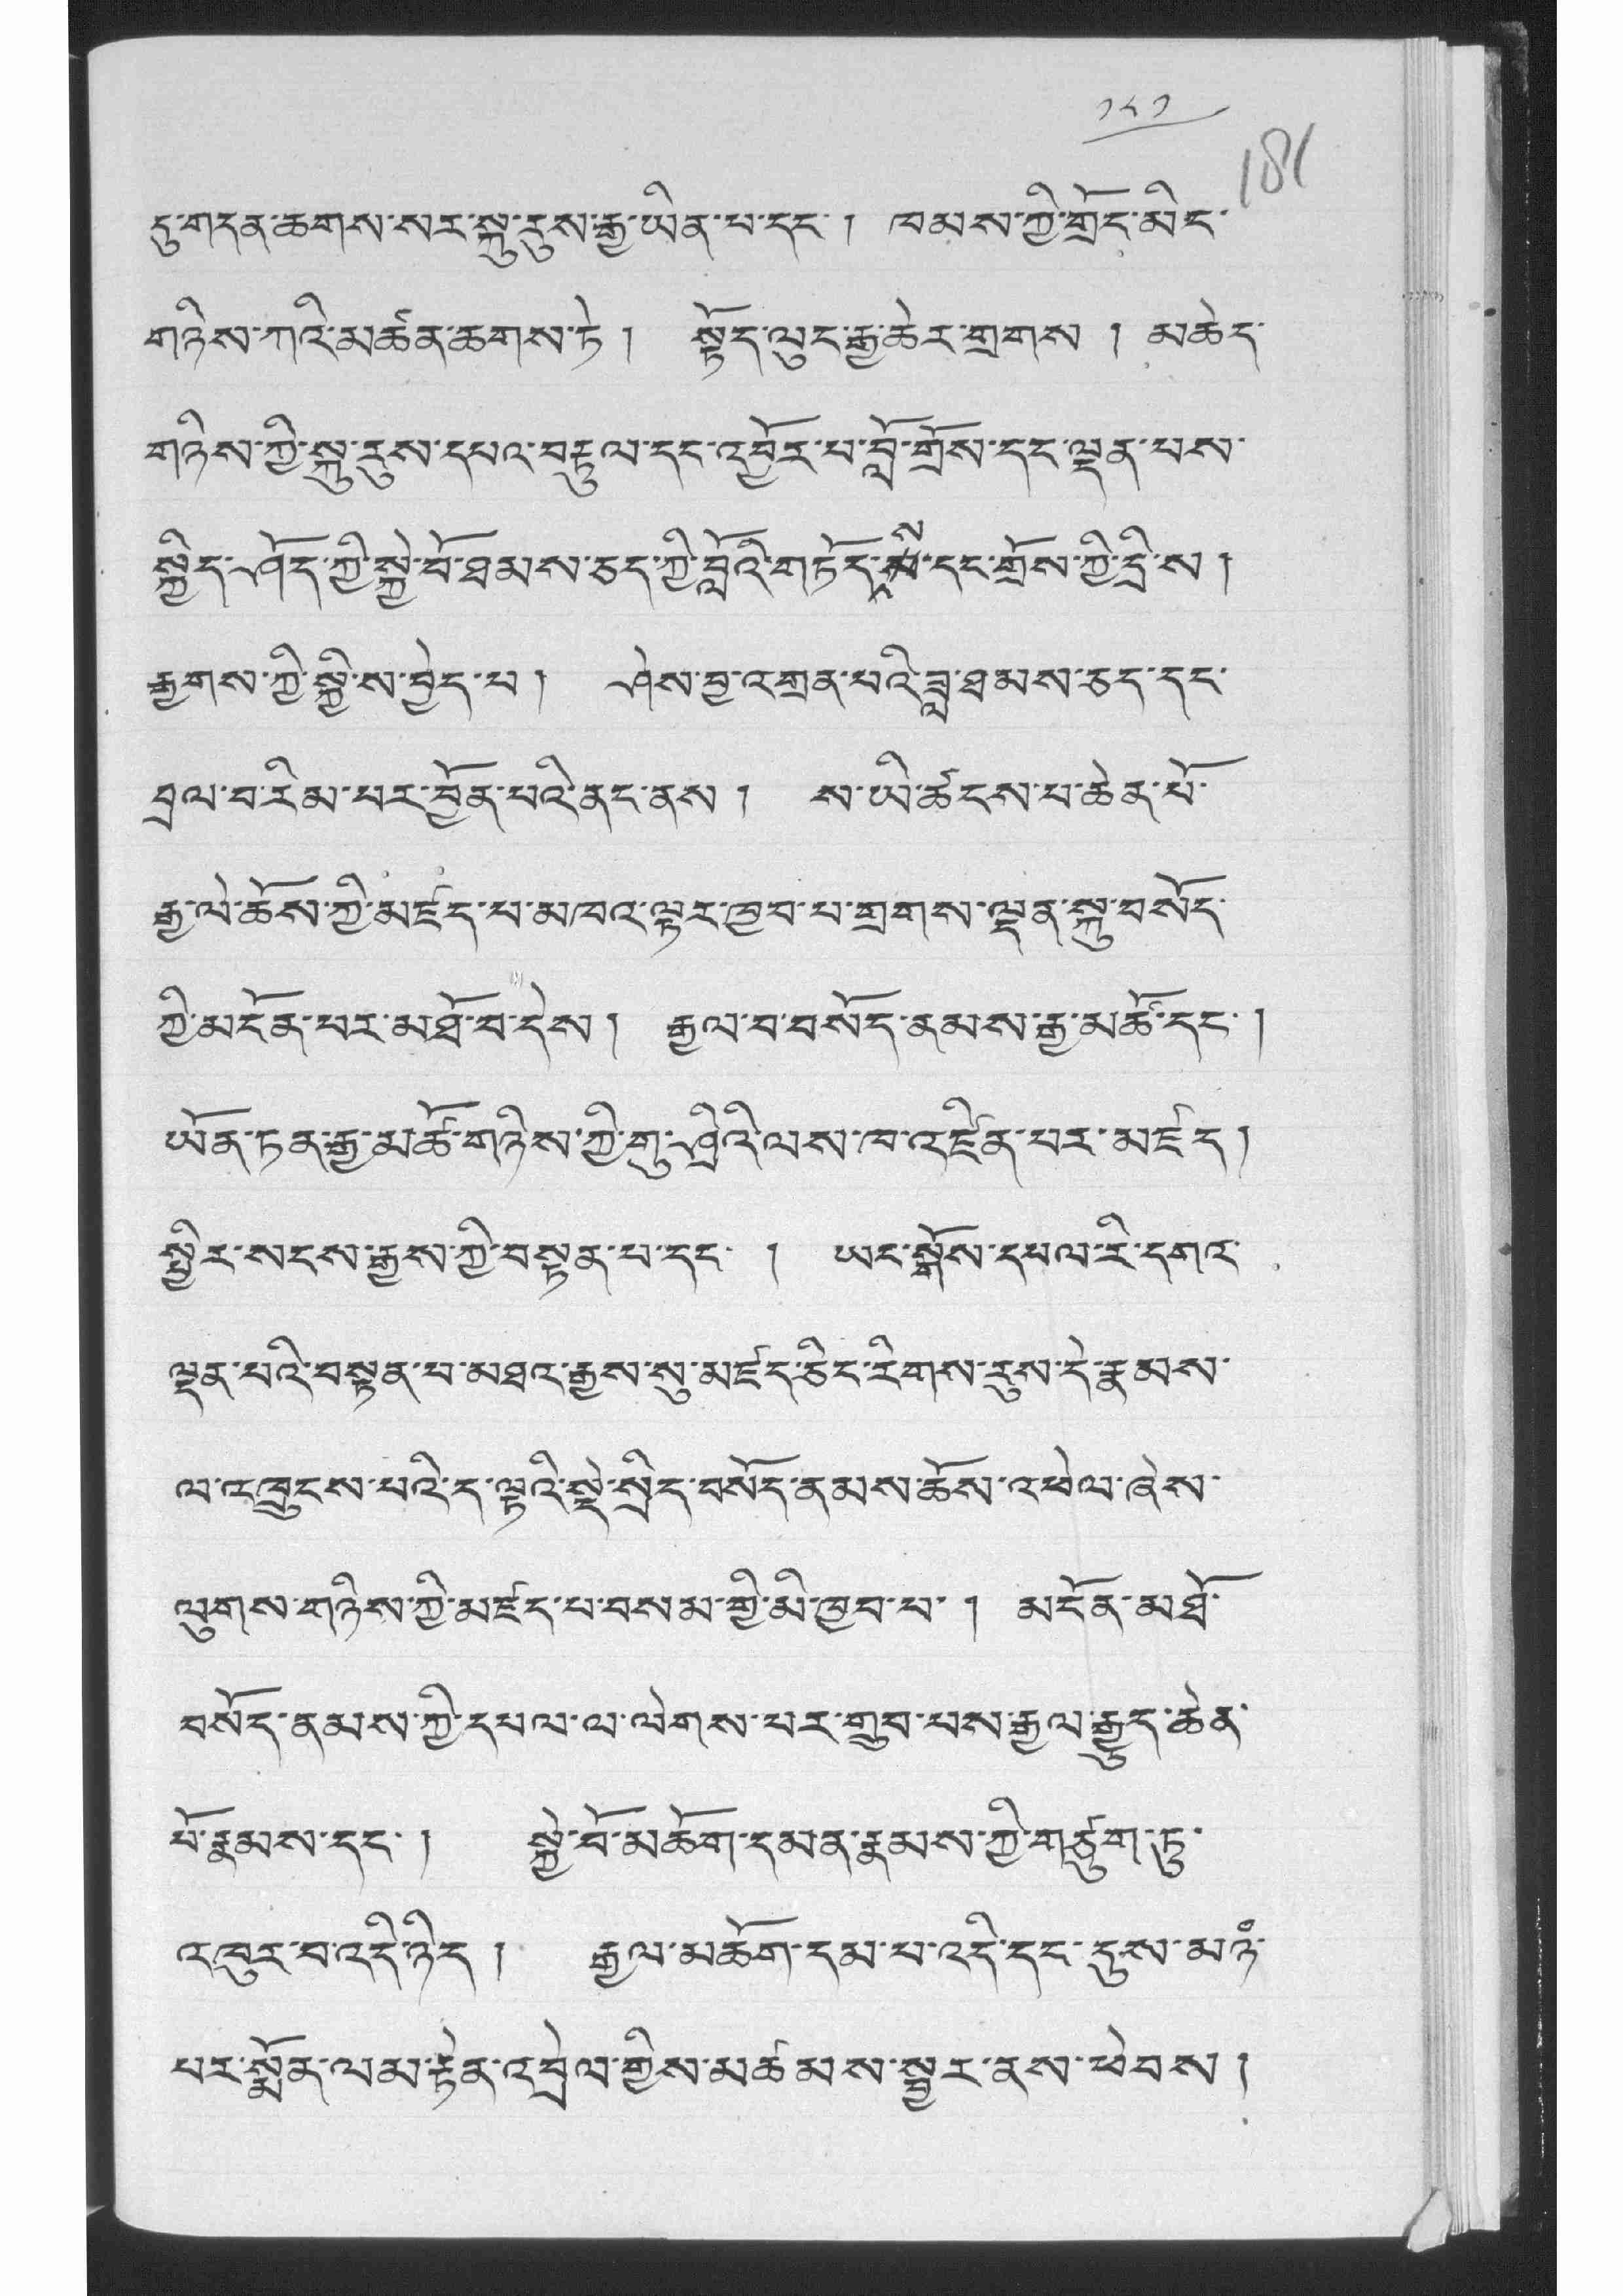 ༡༨༡
181
དུ་གདན་ཆགས་སར་སྐུ་རུས་རྒྱ་ཡིན་པ་དང་། ཁམས་ཀྱི་གྲོང་མིང་
གཉིས་ཀའི་མཚན་ཆགས་ཏེ། སྟོད་ལུང་རྒྱ་ཆེར་གྲགས། མཆེད་
གཉིས་ཀྱི་སྐུ་རུས་དཔའ་བརྟུལ་དང་འབྱོར་པ་བློ་གྲོས་དང་ལྡན་པས་
སྐྱིད་ཤོད་ཀྱི་སྐྱེ་བོ་ཐམས་ཅད་ཀྱི་བློའི་གཏོད་ས་དང་གྲོས་ཀྱི་དྲི་ས།
རྒྱགས་ཀྱི་སྐྱི་ས་བྱེད་པ། ཤེས་བྱ་འགྲན་པའི་ཟླ་ཐམས་ཅད་དང་
བྲལ་བ་རིམ་པར་བྱོན་པའི་ནང་ནས། ས་ཡི་ཚངས་པ་ཆེན་པོ་
རྒྱ་ལེ་ཆོས་ཀྱི་མཛད་པ་མཁའ་ལྟར་ཁྱབ་པ་གྲགས་ལྡན་སྐུ་བསོད་
ཀྱི་མངོན་པར་མཐོ་བ་དེས། རྒྱལ་བ་བསོད་ནམས་རྒྱ་མཚོ་དང་།
ཡོན་ཏན་རྒྱ་མཚོ་གཉིས་ཀྱི་གུ་ཤྲིའི་ལས་ཁ་འཛིན་པར་མཛད།
སྤྱིར་སངས་རྒྱས་ཀྱི་བསྟན་པ་དང་། ཡང་སྒོས་དཔལ་རི་དགའ་
ལྡན་པའི་བསྟན་པ་མཐའ་རྒྱས་སུ་མཛད་ཅིང་རིགས་རུས་དེ་རྣམས་
ལ་འཁྲུངས་པའི་ད་ལྟའི་སྡེ་སྲིད་བསོད་ནམས་ཆོས་འཕེལ་ཞེས་
ལུགས་གཉིས་ཀྱི་མཛད་པ་བསམ་གྱི་མི་ཁྱབ་པ་། མངོན་མཐོ་
བསོད་ནམས་ཀྱི་དཔལ་ལ་ལེགས་པར་གྲུབ་པས་རྒྱལ་རྒྱུད་ཆེན་
པོ་རྣམས་དང་། སྐྱེ་བོ་མཆོག་དམན་རྣམས་ཀྱི་གཙུག་ཏུ་
འཁུར་བ་འདི་ཉིད། རྒྱལ་མཆོག་དམ་པ་འདི་དང་དུས་མཉྃ་
པར་སྨོན་ལམ་རྟེན་འབྲེལ་གྱིས་མཚམས་སྦྱར་ནས་ཕེབས།